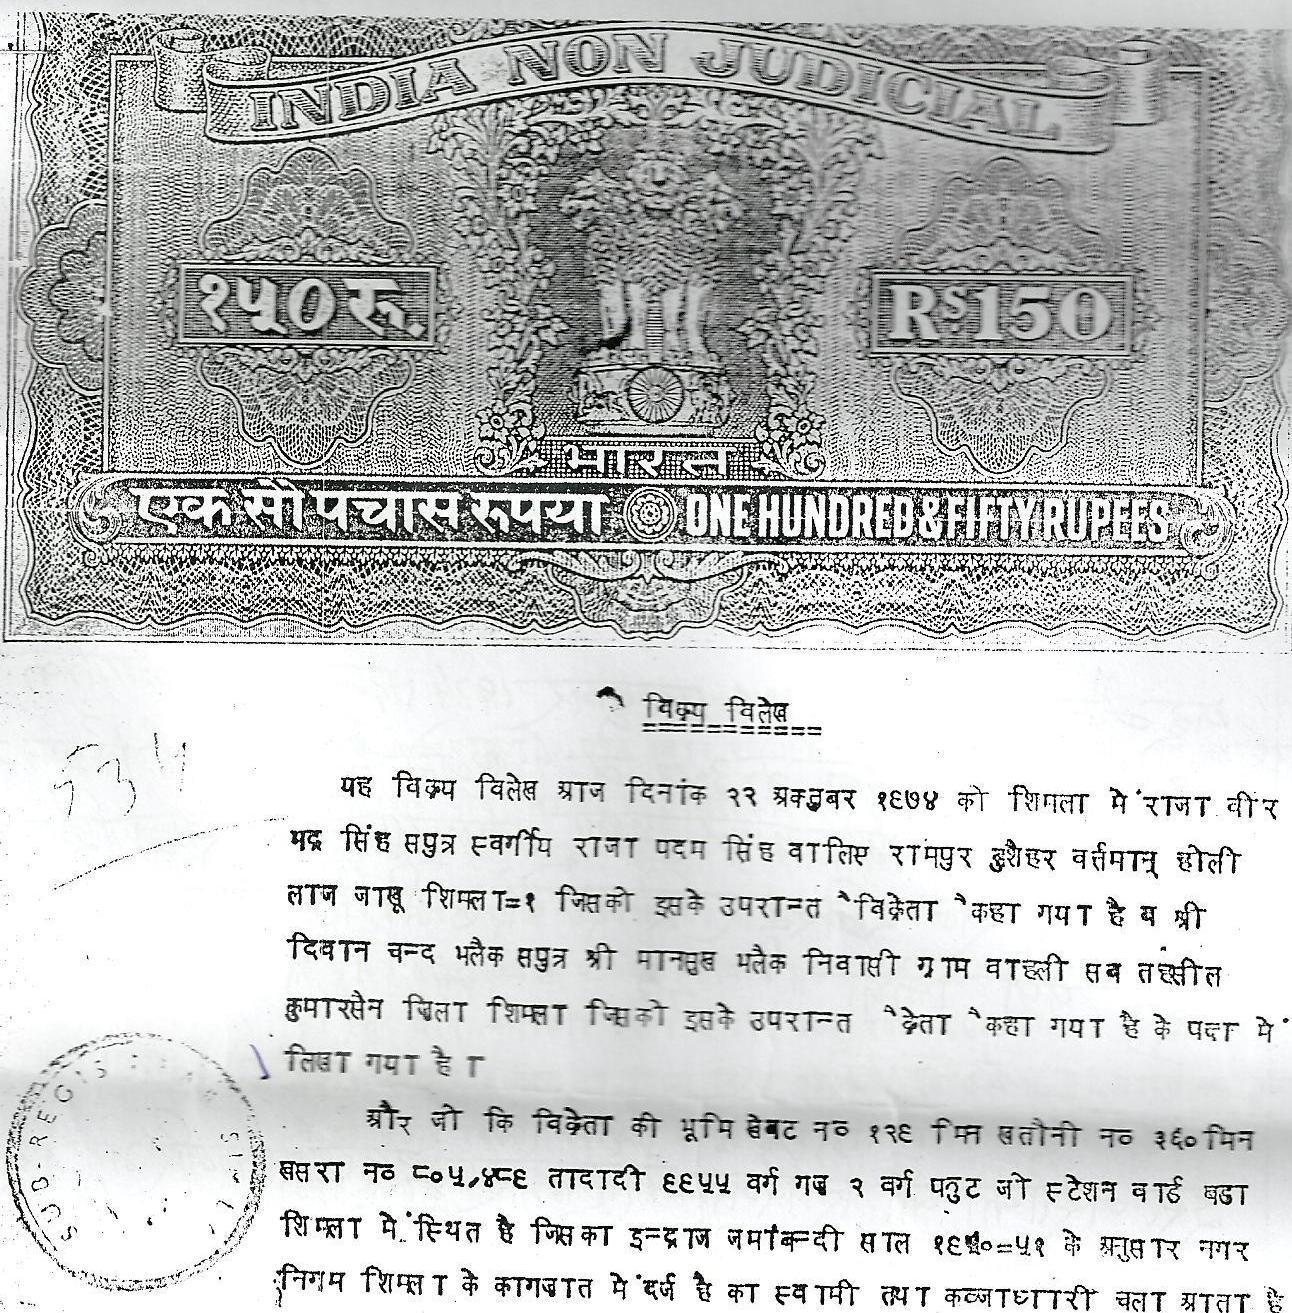 INDIA NON JUDICIAL
१५0 रू.
Rs 150
भारत
एक सौ पचास रूपया ONE HUNDRED & FIFTY RUPEES
विक्रय विलेख
534
यह विक्रय विलेख आज दिनांक २२ अक्टुबर १९७४ को शिमला में राजा वीर
भद्र सिंह सपुत्र स्वर्गीय राजा पदम सिंह वालिए रामपुर बुशैहर वर्तमान होली
लाज जाखू शिमला=१ जिसको इसके उपरान्त "विक्रेता" कहा गया है व श्री
दिवान चन्द भलैक सपुत्र श्री मानसुख भलैक निवासी ग्राम वाहली सब तहसील
कुमारसैन जिला शिमला जिसको इसके उपरान्त "क्रेता" कहा गया है के पक्ष में
लिखा गया है ।
और जो कि विक्रेता की भूमि खेवट नo १२९ मिन खतौनी नo ३६० मिन
खसरा नo ८०५,४८९ तादादी ९९५५ वर्ग गज २ वर्ग फुट जो स्टेशन वार्ड बडा
शिमला में स्थित है जिसका इन्द्राज जमांबन्दी साल १९५०=५१ के अनुसार नगर
निगम शिमला के कागजात में दर्ज है का स्वामी तथा कब्जाधारी चला आता है
SUB-REGIS